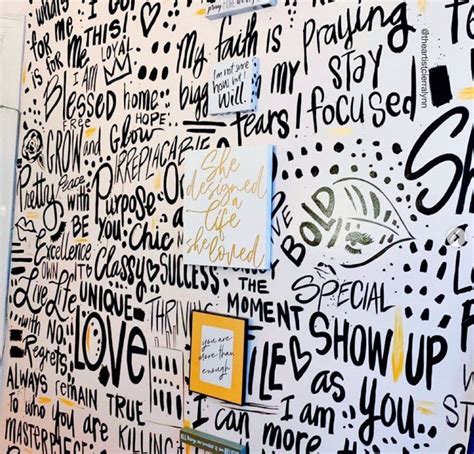 for me
is for
I AM
LOYAL
Blessed
FREE
home.
HOPE.
GROW and Glow
IRREPLACABLE
Pretty
Peace
with
BE
Purpose
Excellence
OWN IT
you
Chic
Classy
SUCCESS
Live Life
with NO
Regrets
UNIQUE
LOVE
ALWAYS REMAIN TRUE
to who you are
KILLING
My faith is
bigg
my
fears
I'm not sure
how but I
Well
Praying
STAY
focused
I
@theartistcierralynn
She
designed
a
life
she loved
BOLD
SPECIAL
THE
MOMENT
THRIVING
you are
more than
enough
SHOW UP
as You
I am
I can more